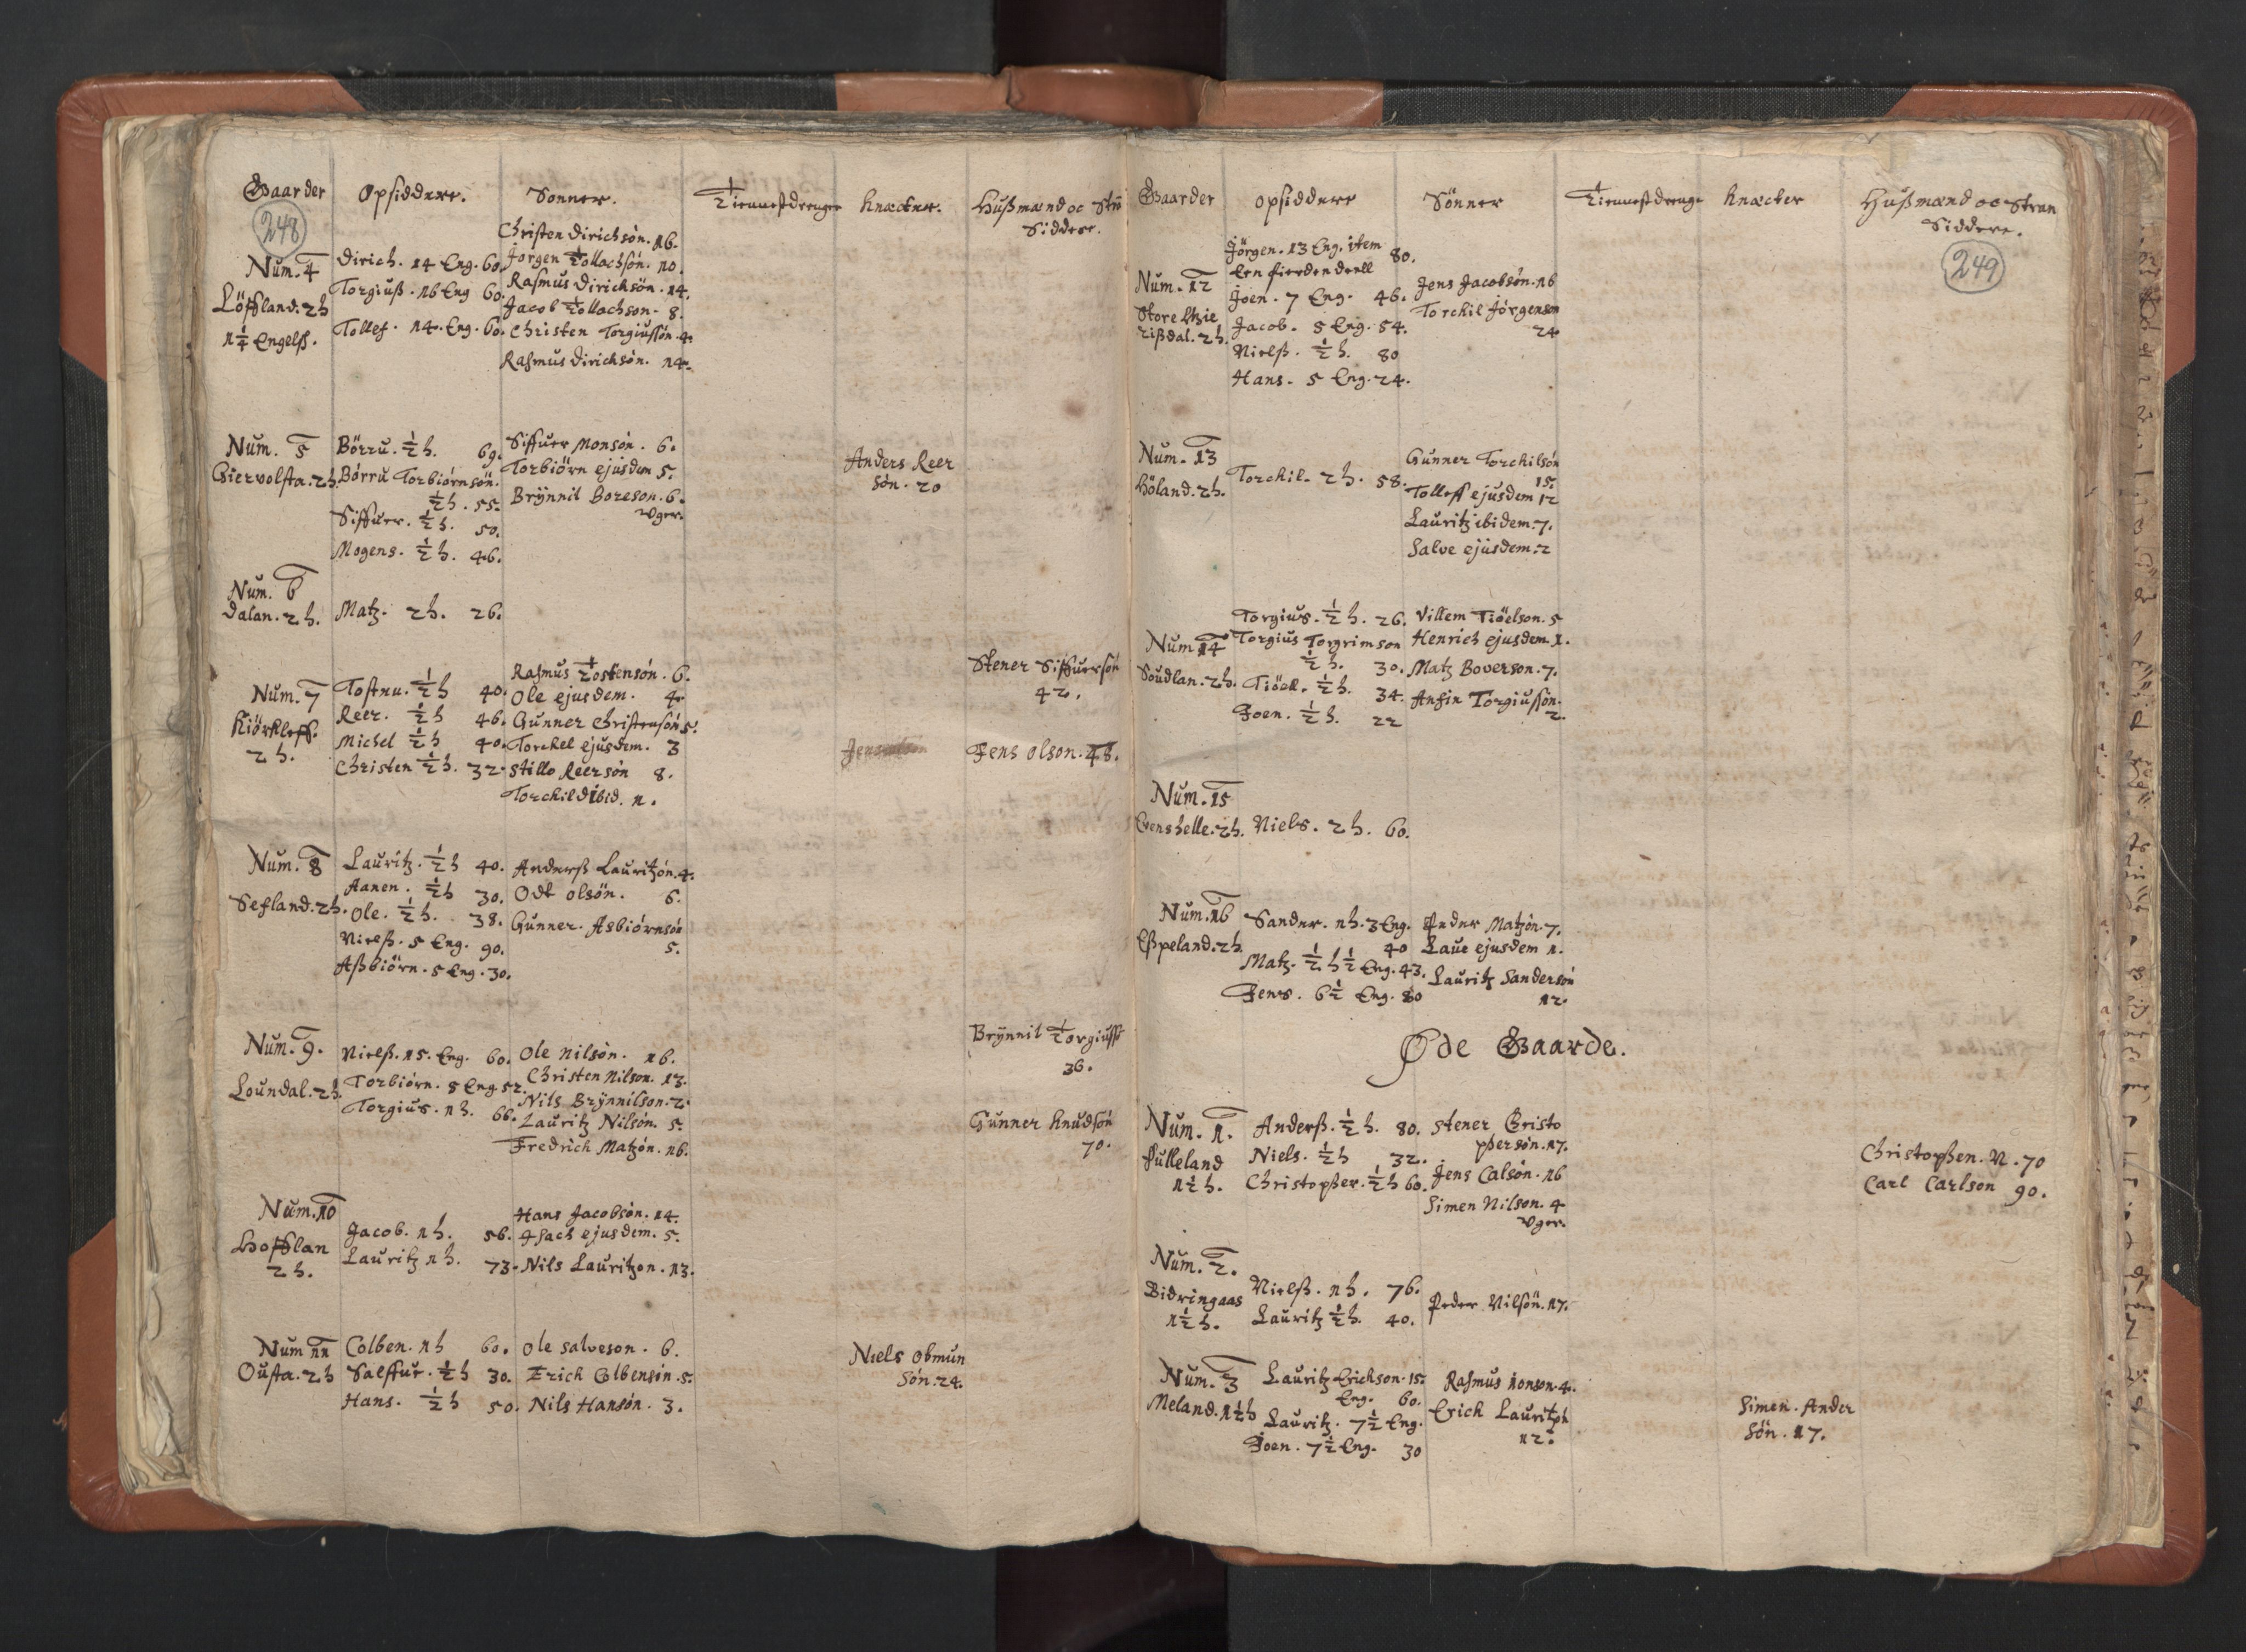 Gaarder Opsiddere. Sonner. Tiennestdrenger Knæcter. Hußmænd oc Stra
Siddere.
248
Num. 4
Löffland. 2 h
1 1/4 Engelß.
Dirich. 14 Eng. 60.
Torgiuß. 16 Eng 60.
Tollef. 14. Eng. 60.
Christen Dirichsön. 16.
Jorgen Tollachsön. 10.
Rasmus Dirichsön. 14.
Jacob Tollachson. 8.
Christen Torgiussön. 4.
Rasmus Dirichsön. 14.
Num. 5
Giervolsta. 2 h.
Börru. 1/2 h. 69.
Börru Torbiörnsön.
1/2 h. 55.
Siffuer. 1/2 h. 50.
Mogens. 1/2 h. 46.
Siffuer Monsön. 6.
Torbiörn ejusdem 5.
Brÿnnil Boreson. 6.
Vger.
Anders Reer
sön. 20
Num. 6
Dalan. 2 h.
Matz. 2 h. 26.
Num. 7
Kiörkleff.
2 h.
Tostnu. 1/2 h 40.
Reer. 1/2 h 46.
Michel 1/2 h 40.
Christen 1/2 h. 32.
Rasmus Tostensön. 6.
Ole ejusdem. 4
Gunner Christensön 5.
Torchel ejusdem. 3
Stillo Reersön 8.
Torchild ibid. 1.
Stener Siffuersön
42.
Jens olson. 48.
Num. 8
Sefland. 2 h.
Lauritz. 1/2 h 40.
Aanen. 1/2 h 30.
Ole. 1/2 h. 38.
Nielß. 5 Eng. 90.
Aßbiörn. 5 Eng. 30.
Anderß Lauritzön. 4.
Odt olsön. 6.
Gunner. Asbiörnsön
5.
Num. 9.
Loundal. 2 h.
Nielß. 15. Eng. 60.
Torbiörn. 5 Eng 52.
Torgius. 1 h. 66.
Ole Nilsön. 16.
Christen Nilson. 13.
Nils Brÿnnilson. 2.
Lauritz Nilsön. 5.
Fredrich Matzön. 16.
Brÿnnil Torgiuss
36.
Gunner Knudsön
70.
Num. 10
Hofflan
2 h.
Jacob. 1 h. 56.
Lauritz 1 h. 73.
Hans Jacobsön. 14.
Isach ejusdem. 5.
Nils Lauritzon. 13.
Num 11
Ousta. 2 h
Colben. 1 h 60.
Salffur. 1/2 h 30.
Hans. 1/2 h 50.
Ole Salveson. 6.
Erich Colbensön. 5.
Nils Hansön. 3.
Niels obmun
Sön. 24.
Gaarder opsiddere Sönner Tiennestdrenge Knæcter Hußmænd oc Stran
Siddere.
249
Num. 12
Store
rißdal. 2 h.
Jörgen. 13 Eng. item
Een fierdendeell 80.
Joen. 7 Eng. 46.
Jacob. 5 Eng. 54.
Nielß. 1/2 h. 80
Hans. 5 Eng. 24.
Jens Jacobsön. 16
Torchil Jörgenson
24
Num. 13
Höland. 2 h.
Torchil. 2 h. 58.
Gunner Torchilsön
15.
Tolleff ejusdem 12
Lauritz ibidem. 7.
Salve ejusdem. 2
Num 14
Soudlan. 2 h.
Torgius. 1/2 h. 26.
Torgius Torgrimson
1/2 h. 30.
Tiöel. 1/2 h. 34.
Joen. 1/2 h. 22
Villem Tiöelson. 5
Henrich ejusdem. 1.
Matz Boverson. 7.
Anfin Torgiussön.
2.
Num. 15
Evenshelle. 2 h.
Niels. 2 h. 60.
Num. 16
Eßpeland. 2 h
Sander. 1 h. 3 Eng.
40
Matz. 1/2 h 1/2 Eng. 43.
Jens. 6 1/2 Eng. 80
Peder Matzön. 7.
Laue ejusdem 1.
Lauritz Sandersön
12.
Øde Gaarde.
Num. 1.
Fulleland
1 1/2 h.
Anderß. 1/2 h. 80.
Niels. 1/2 h 32.
Christopher. 1/2 h 60.
Stener Cristo
phersön. 17.
Jens Calsön. 16
Simen Nilson. 4
Vger.
Christophen. N. 70
Carl Carlson 90.
Num. 2.
Bidringaas
1 1/2 h.
Nielß. 1 h. 76.
Lauritz 1/2 h. 40.
Peder Nilsön. 17.
Num. 3
Meland. 1 1/2 h
Lauritz Erichson. 15.
Eng. 60.
Lauritz. 7 1/2 Eng.
Joen. 7 1/2 Eng. 30
Rasmus Ionson. 4.
Erich Lauritzön
12.
Simen. Ander
Sön. 17.